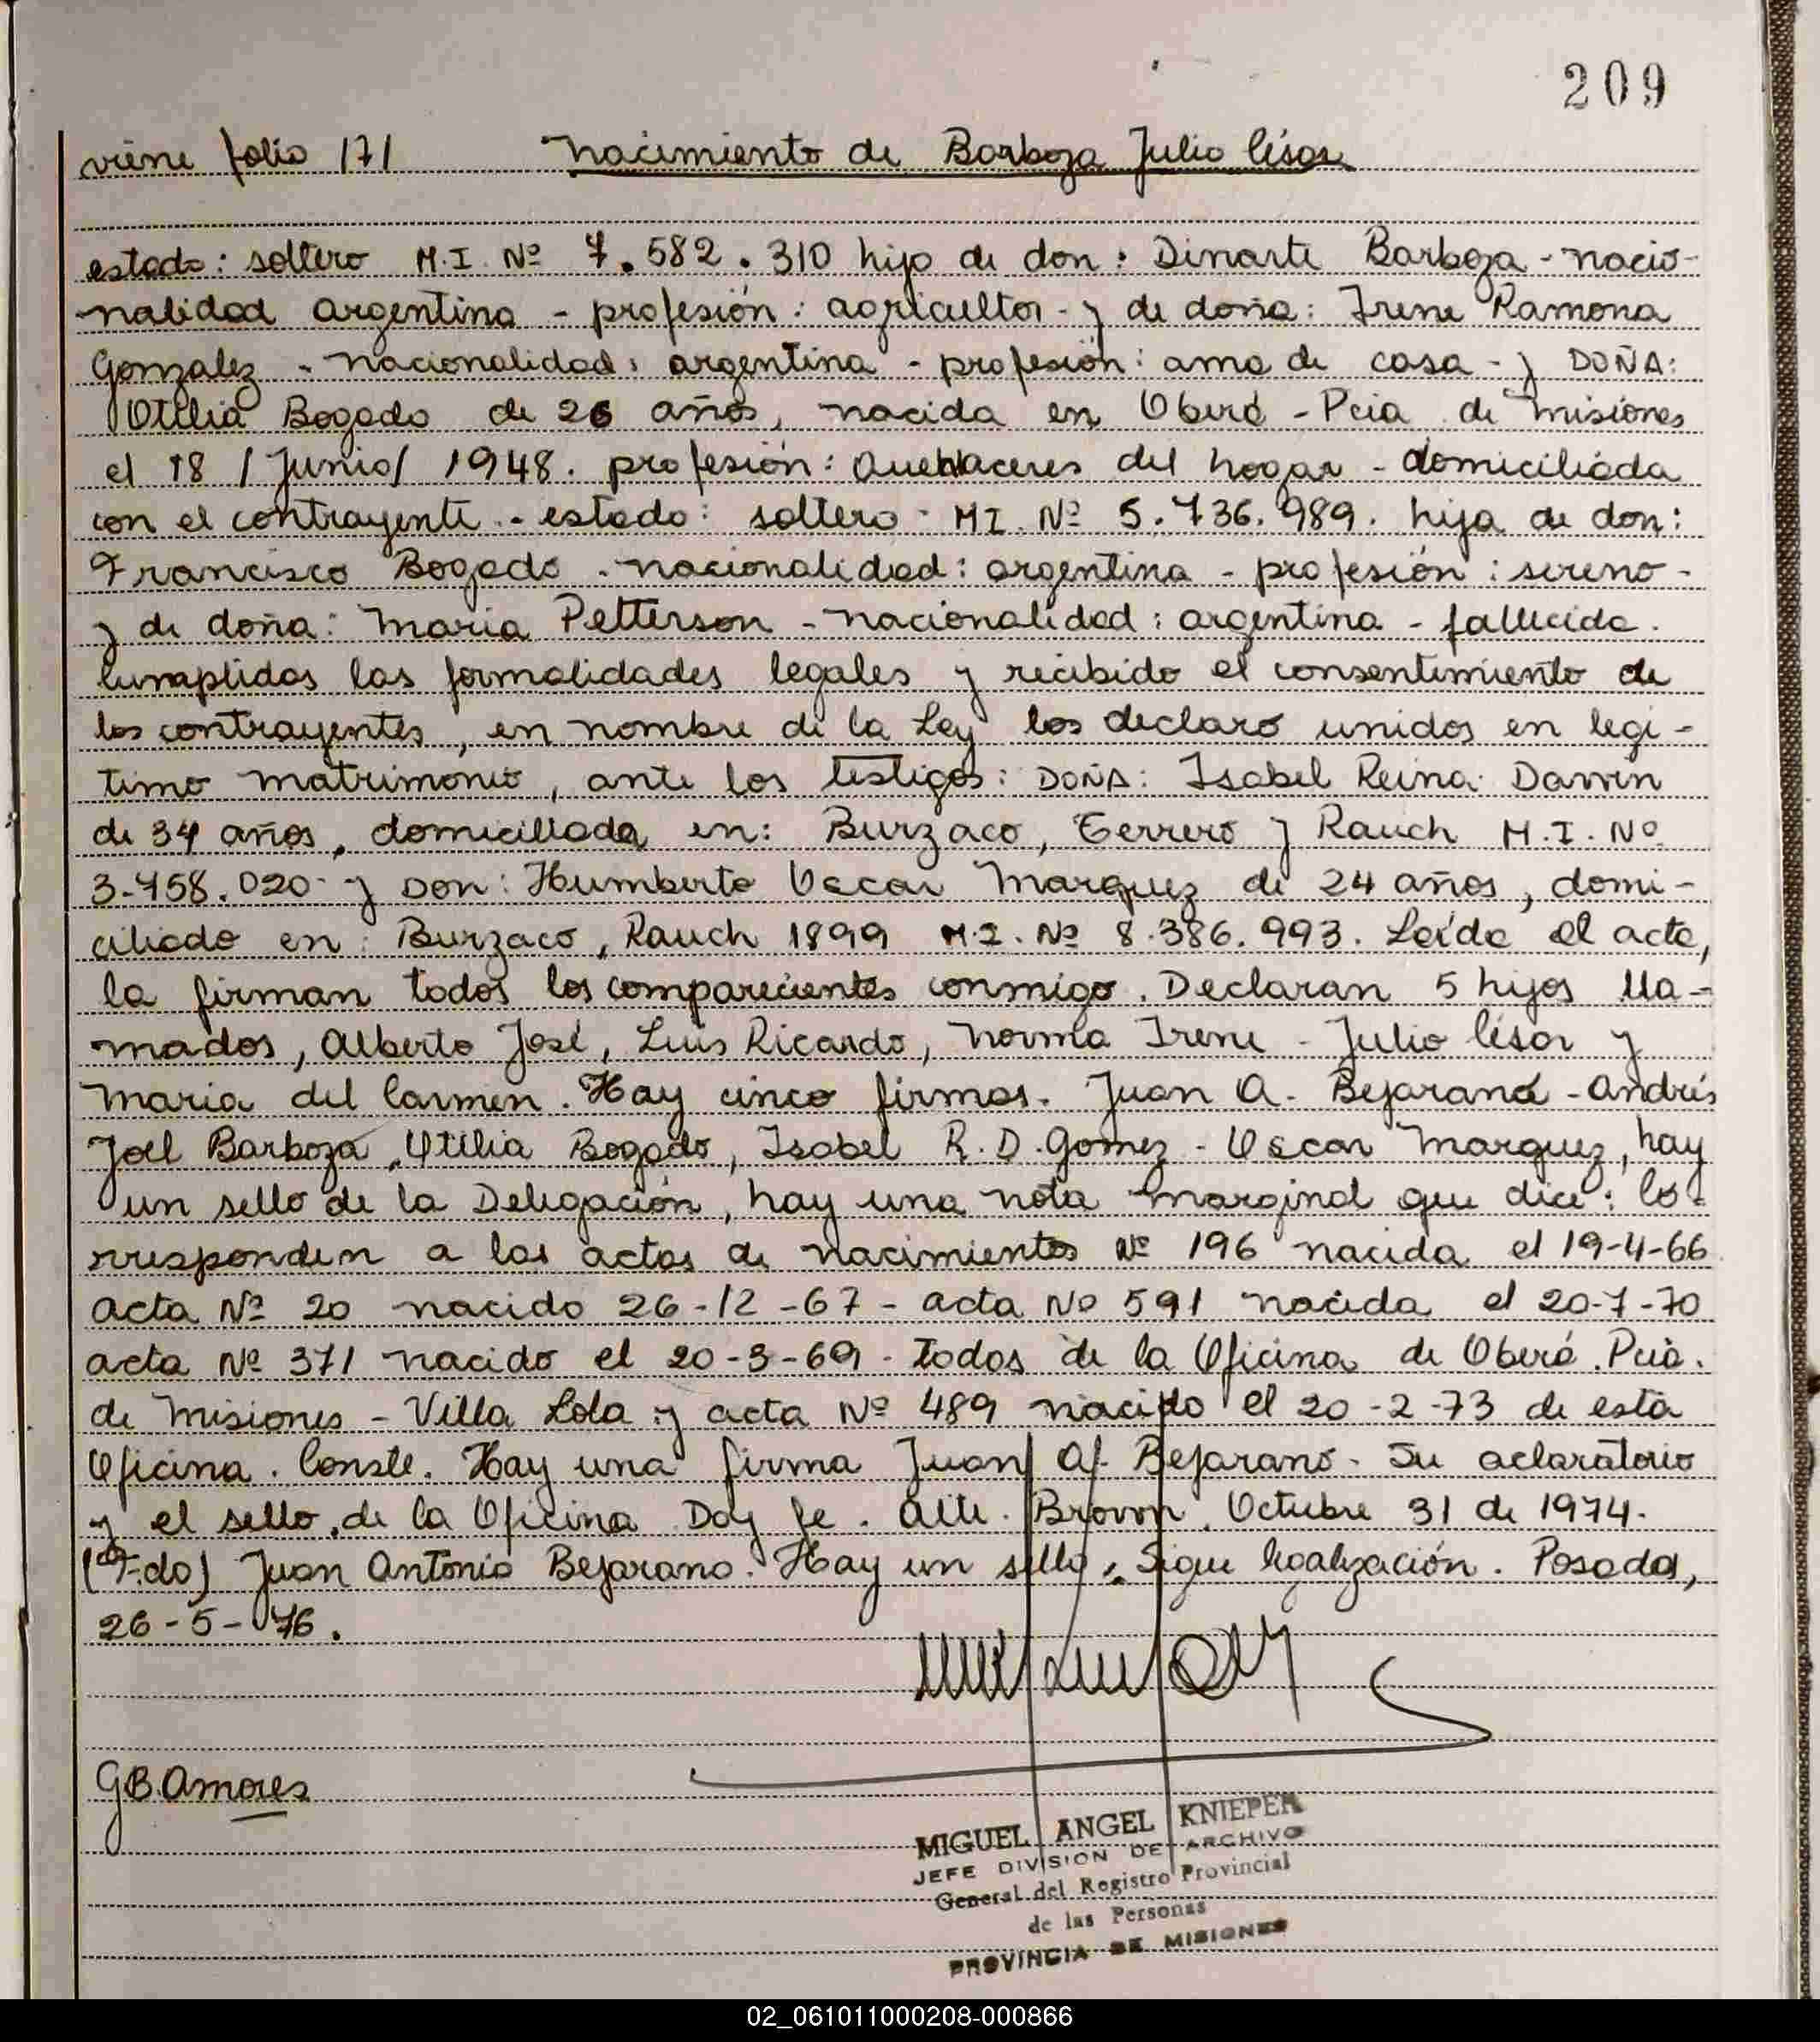 209
viene folio 171 Nacimiento de Barboza Julio César
estado: soltero M.I. Nº 7.582.310 hijo de don: Dinarte Barboza - nacio-
nalidad argentina - profesión: agricultor - y de doña: Irene Ramona
Gonzalez - nacionalidad: argentina - profesión: ama de casa - y DOÑA:
Otilia Bogado de 26 años, nacida en Oberá - Pcia de Misiones
el 18 / Junio / 1948. profesión: Quehaceres del hogar - domiciliada
con el contrayente - estado: soltero - MI. Nº 5.736.989. hija de don:
Francisco Bogado - nacionalidad: argentina - profesión: sereno -
y de doña: Maria Petterson - nacionalidad: argentina - fallecida.
Cumplidas las formalidades legales y recibido el consentimiento de
los contrayentes, en nombre de la Ley los declaro unidos en legi-
timo matrimonio, ante los testigos: DOÑA: Isabel Reina
de 34 años, domiciliada en: Burzaco, Ferrero y Rauch M.I. Nº
3.758.020 - y DON: Humberto Oscar Marquez de 24 años, domi-
ciliado en: Burzaco, Rauch 1899 M.I. Nº 8.386.993. Leída el acta,
la firman todos los comparecientes conmigo. Declaran 5 hijos lla-
mados, Alberto José, Luis Ricardo, Norma Irene - Julio César y
Maria del Carmen. Hay cinco firmas. Juan A. Bejarano - Andrés
Joel Barboza, Otilia Bogado, Isabel R. D. Gomez - Oscar Marquez, hay
un sello de la Delegación, hay una nota marginal que dice: Co-
rresponden a las actas de nacimientos Nº 196 nacida el 19-4-66
acta Nº 20 nacido 26-12-67 - acta Nº 591 nacida el 20-7-70
acta Nº 371 nacido el 20-3-69 - Todos de la Oficina de Oberá. Pcia.
de Misiones - Villa Lola y acta Nº 489 nacido el 20-2-73 de esta
Oficina. Conste. Hay una firma Juan A. Bejarano - Su aclaratorio
y el sello de la Oficina Doy fe. Alte. Brown, Octubre 31 de 1974.
(Fdo) Juan Antonio Bejarano. Hay un sello. Sigue legalización. Posadas,
26-5-76.
GB.Amores
MIGUEL ANGEL KNIEPER
JEFE DIVISION DE ARCHIVO
General del Registro Provincial
de las Personas
PROVINCIA DE MISIONES
02_061011000208-000866